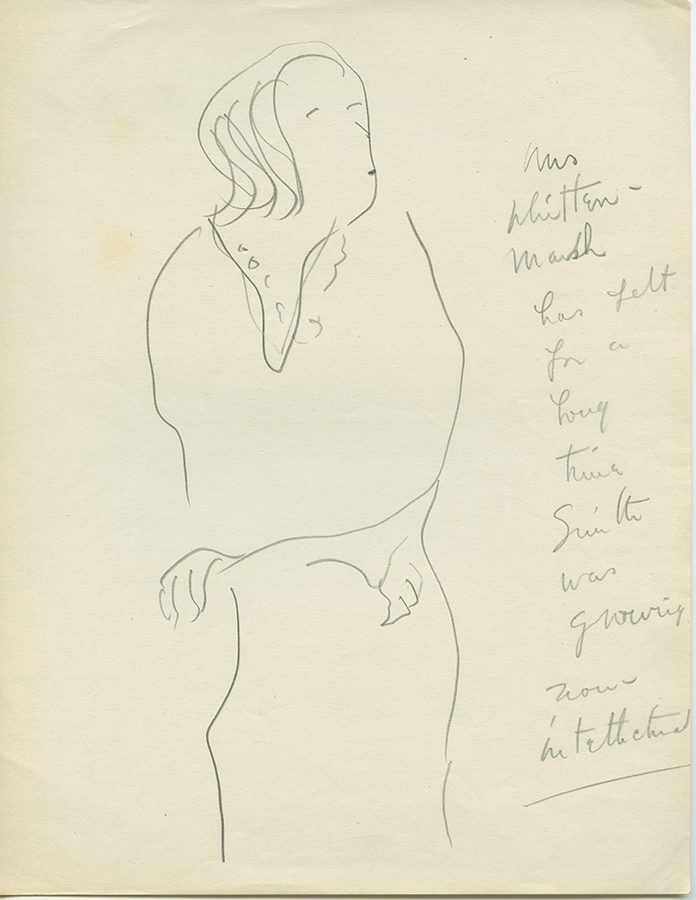 Mrs
Whitten-
Marsh
has felt
for a
long
time
Smith
was
growing
non-
intellectual